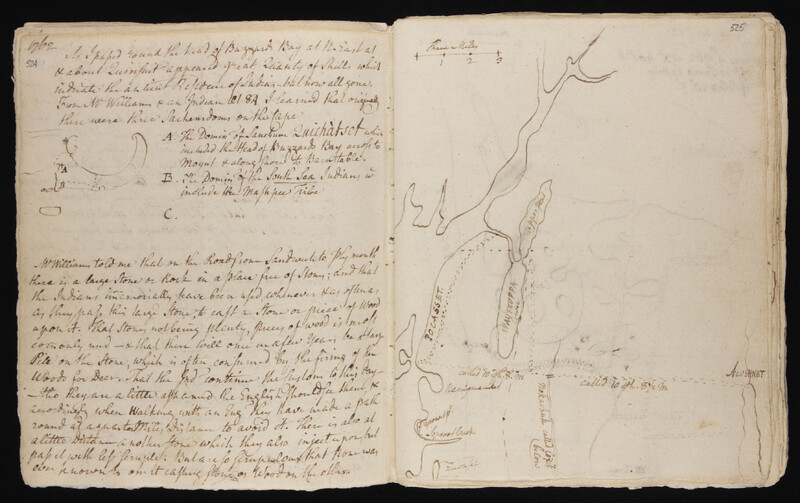 1762
524
As I passed round the head of Buzzards Bay at N. East at
& about Quinset appeared great Quantity of Shells which
indicate the antient Residence of Indians but now all gone
From Mr Williams & an Indian I learned that originally
there were three Sachemdoms on the Cape
A. The Domin of Sanctum Quichatset which
included the Head of Buzzards Bay across to
Mount & along shore to Barnstable.
B. The Domin of the South Sea Indians
include the Mashpee Tribe
C.
A
Mr Williams told me that on the Road from Sandwich to Plymouth
there is a large Stone or Rock in a place free of Stones; and that
the Indians immemorially have been used, whenever & as often as
as they pass this large Stone, to cast a Stone or piece of Wood
upon it. That Stones not being plenty, pieces of wood is most
commonly used — & that there will once in a few Years be a large
Pile on the Stone, which is often consumed by the firing of the
Woods for Deer. That the Inds continue the Custom to this day
— tho' they are a little ashamed the English should see them, &
accordingly when walking with an Eng. they have made a path
round at a quarter Mile's Distance to avoid it. There is also at
a little Distance another Stone which they also inject upon, but
pass it with less scruple. But are so scrupulous that none was
ever known to omit casting Stone or Wood on the other.
525
Three Miles
1 2 3
POCASSET
WATUPPA
called 10 m
called 10
ACUSHNET
Sproal Creek
below